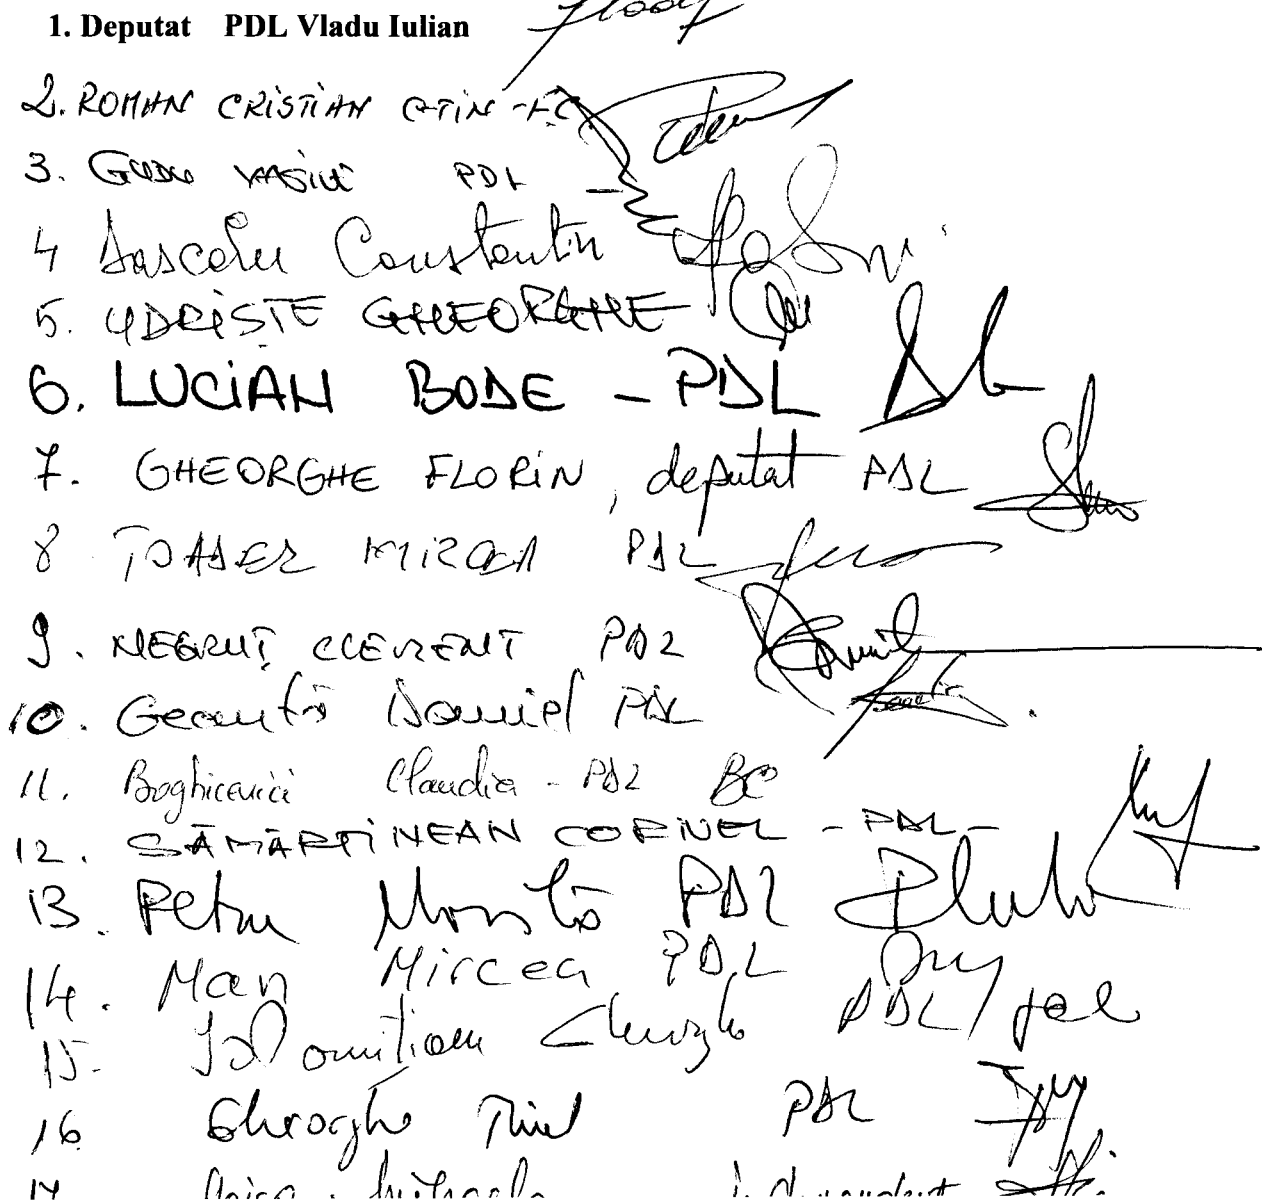 1. Deputat PDL Vladu Iulian
2. ROMAN CRISTIAN
3. GUDU VASILE PDL -
4 Dascălu Constantin
5. UDRIȘTE GHEORGHE
6. LUCIAN BODE - PDL
7. GHEORGHE FLORIN, deputat PDL
8 TOADER MIRCEA PDL
9. NEGRUȚ CLEMENT PDL
10. Geantă Daniel PDL
11. Boghicevici Claudia - PDL BC
12. SĂMĂRTINEAN CORNEL - PDL -
13. Petru PDL
14. Man Mircea PDL
15. Ialomițianu Gheorghe PDL
16 Gheorghe Tinel PDL
17 independent